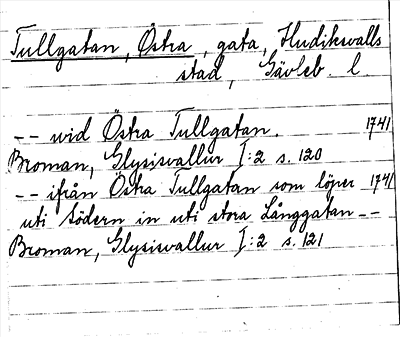 Tullgatan, Östra, gata, Hudiksvalls
stad, Gävleb. l.
-- wid Östra Tullgatan. 1741
Broman, Glysisvallur I:2 s. 120
-- ifrån Östra Tullgatan som löper 1741
uti Södern in uti stora Långgatan --
Broman, Glysisvallur I:2 s. 121